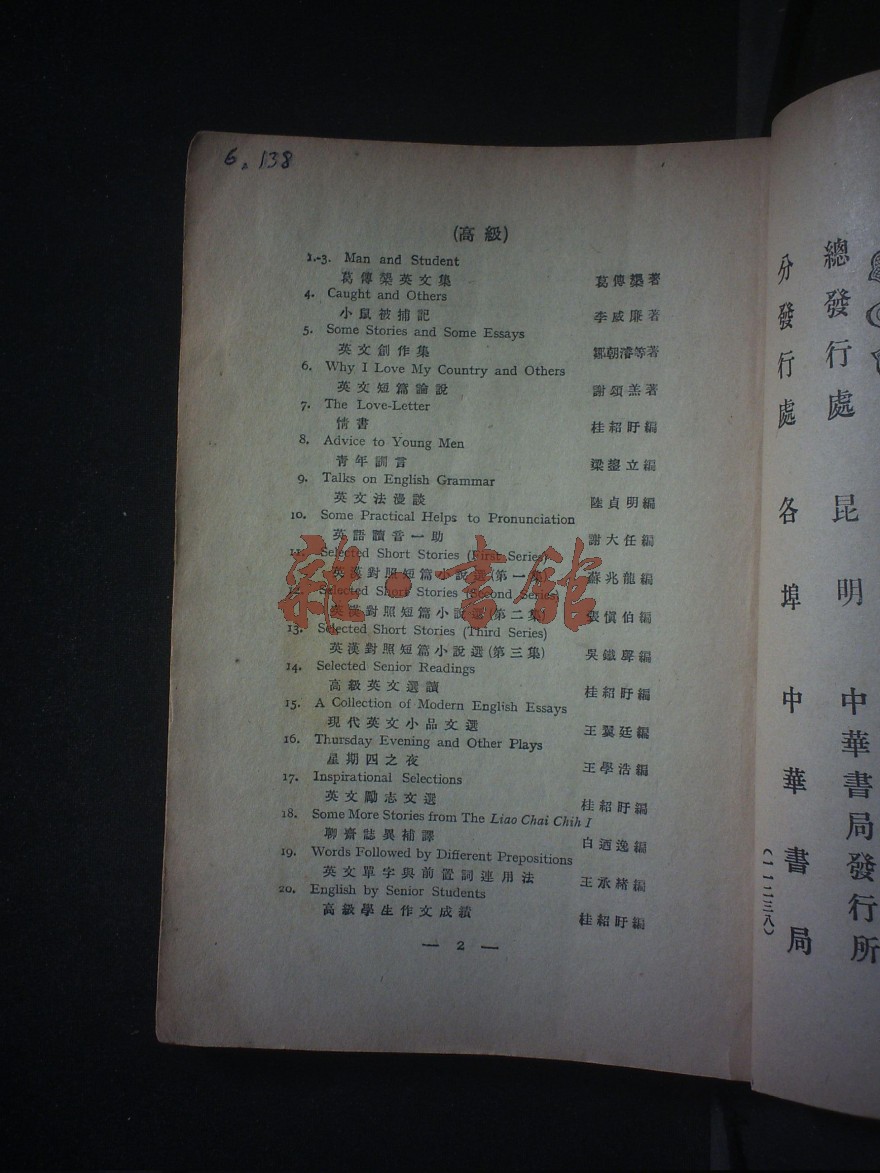 6. 138
(高級)
1.-3. Man and Student
葛傳槼英文集 葛傳槼著
4. Caught and Others
小鼠被捕記 李威廉著
5. Some Stories and Some Essays
英文創作集 鄒朝濬等著
6. Why I Love My Country and Others
英文短篇論說 謝頌羔著
7. The Love-Letter
情書 桂紹盱編
8. Advice to Young Men
青年訓言 梁鋆立編
9. Talks on English Grammar
英文法漫談 陸貞明編
10. Some Practical Helps to Pronunciation
英語讀音一助 謝大任編
11. Selected Short Stories (First Series)
英漢對照短篇小說選(第一集) 蘇兆龍編
12. Selected Short Stories (Second Series)
英漢對照短篇小說選(第二集) 張愼伯編
13. Selected Short Stories (Third Series)
英漢對照短篇小說選(第三集) 吳鐵聲編
14. Selected Senior Readings
高級英文選讀 桂紹盱編
15. A Collection of Modern English Essays
現代英文小品文選 王翼廷編
16. Thursday Evening and Other Plays
星期四之夜 王學浩編
17. Inspirational Selections
英文勵志文選 桂紹盱編
18. Some More Stories from The Liao Chai Chih I
聊齋誌異補譯 白迺逸編
19. Words Followed by Different Prepositions
英文單字與前置詞連用法 王承緒編
20. English by Senior Students
高級學生作文成績 桂紹盱編
— 2 —
雜·書館
總發行處 昆明 中華書局發行所
分發行處 各埠 中華書局
(一一二三八)